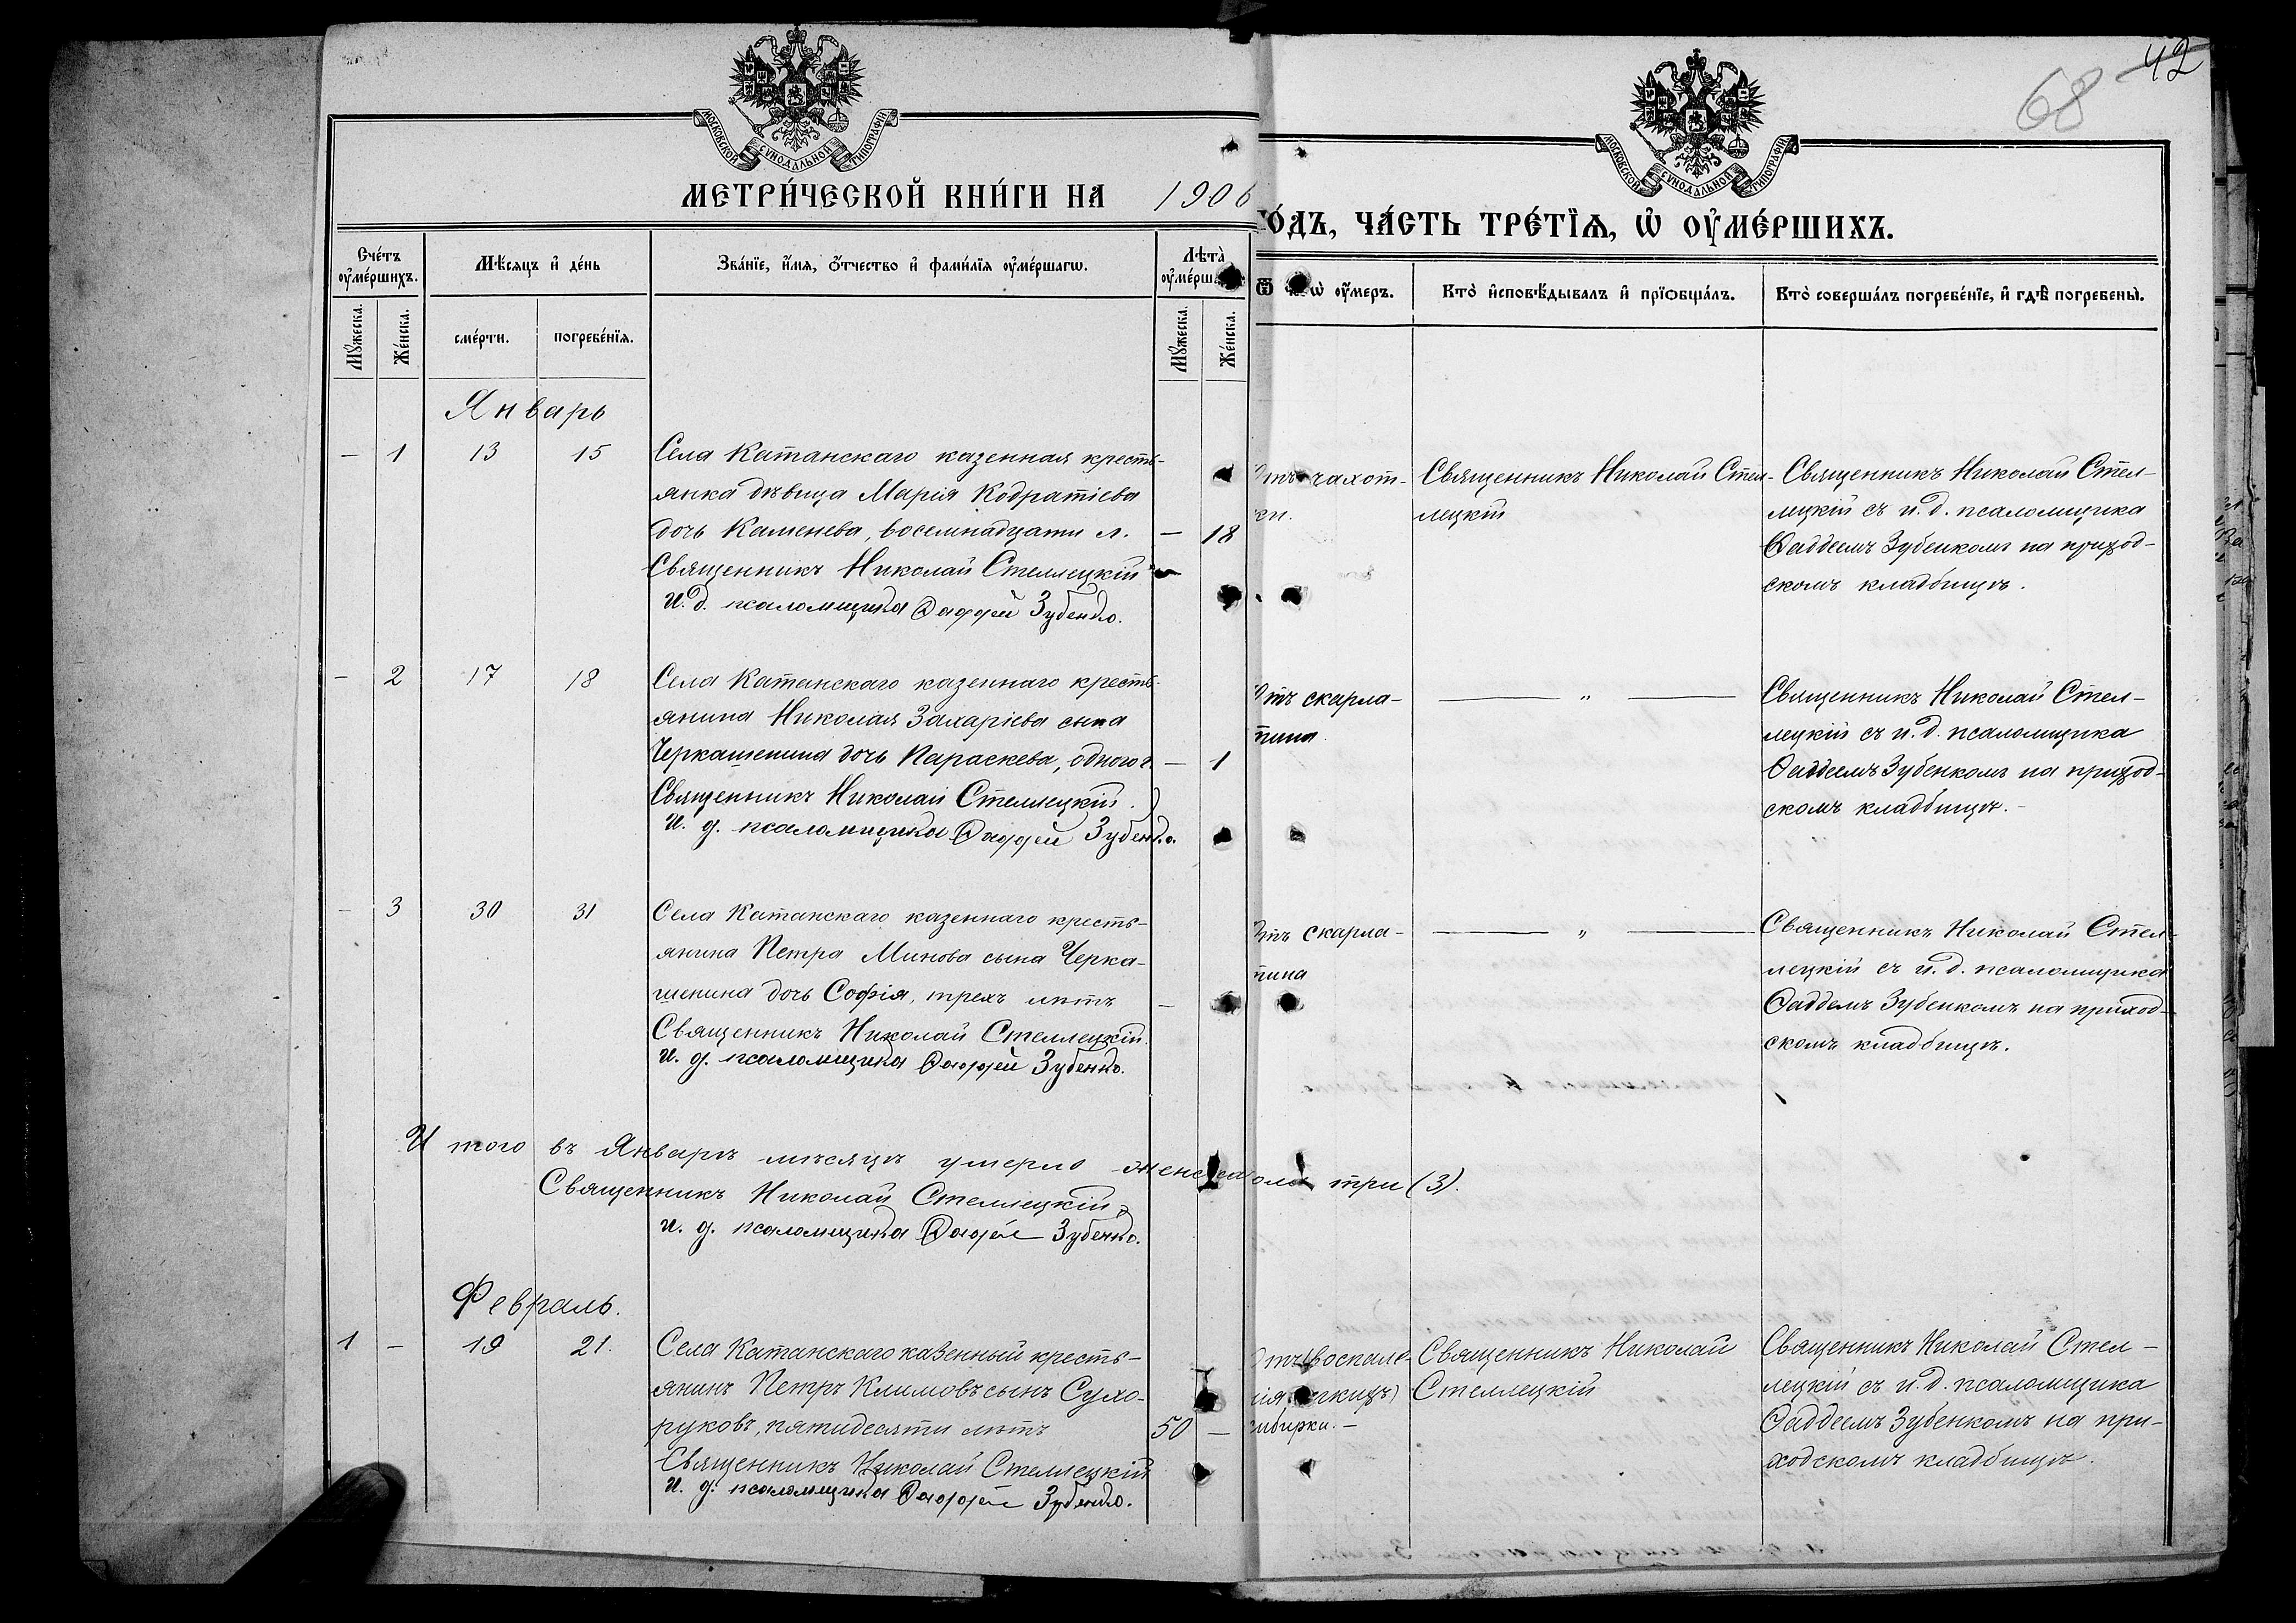 42
68
МОСКОВСКОЙ СѴНОДАЛЬНОЙ ТИПОГРАФІИ
МОСКОВСКОЙ СѴНОДАЛЬНОЙ ТИПОГРАФІИ
МЕТРИ́ЧЕСКОЙ КНИ́ГИ НА 1906
ГО́ДЪ, ЧА́СТЬ ТРЕ́ТЇѦ, Ѡ҆ ОУ҆МЕ́РШИХЪ.
Сче́тъ оу҆ме́ршихъ.
Мѣ́сяцъ и҆ де́нь
Зва́нїе, и҆́мя, ѻ҆́тчество и҆ фами́лїя оу҆ме́ршагѡ.
Лѣта̀ оу҆ме́рш
ѡ҆ оу҆́меръ.
Кто̀ и҆сповѣ́дывалъ и҆ прїѡбща́лъ.
Кто̀ соверша́лъ погребе́нїе, и҆ гдѣ̀ погребены̀.
Мꙋ́жеска.
Же́нска.
сме́рти.
погребе́нїя.
Мꙋ́жеска.
Же́нска.
Январь
— 1 13 15
Села Катанскаго казенная кресть-
янка дѣвица Марія Кодратіева
дочь Каменева, восемнадцати л. — 18
Священникъ Николай Стеллецкій
И. д. псаломщика Ѳаддей Зубенко.
отъ чахот-
ки.
Священникъ Николай Стел-
лецкій
Священникъ Николай Стел-
лецкій съ и. д. псаломщика
Ѳаддеемъ Зубенкомъ на приход-
скомъ кладбищѣ.
— 2 17 18
Села Катанскаго казеннаго кресть-
янина Николая Захаріева сына
Черкашенина дочь Параскева, одного г. — 1
Священникъ Николай Стеллецкій.
И. д. псаломщика Ѳаддей Зубенко.
отъ скарла-
тина
— „ —
Священникъ Николай Стел-
лецкій съ и. д. псаломщика
Ѳаддеемъ Зубенкомъ на приход-
скомъ кладбищѣ.-
— 3 30 31
Села Катанскаго казеннаго кресть-
янина Петра Минова сына Черка-
шенина дочь Софія, трехъ лѣтъ —
Священникъ Николай Стеллецкій.
и. д. псаломщика Ѳаддей Зубенко.
отъ скарла-
тина
— „ —
Священникъ Николай Стел-
лецкій съ и. д. псаломщика
Ѳаддемъ Зубенкомъ на приход-
скомъ кладбищѣ.
Итого въ Январѣ мѣсяцѣ умерло женска пола три (3).
Священникъ Николай Стеллецкій
и. д. псаломщика Ѳаддей Зубенко.
Февраль.
1 — 19 21.
Села Катанскаго казенный кресть-
янинъ Петръ Климовъ сынъ Сухо-
руковъ, пятидесяти лѣтъ 50 —
Священникъ Николай Стеллецкій
и. д. псаломщика Ѳаддей Зубенко.
отъ (воспале-
нія легкихъ)
сибирки.-
Священникъ Николай
Стеллецкій
Священникъ Николай Стел-
лецкій съ и. д. псаломщика
Ѳаддеемъ Зубенкомъ на при-
ходскомъ кладбищѣ.